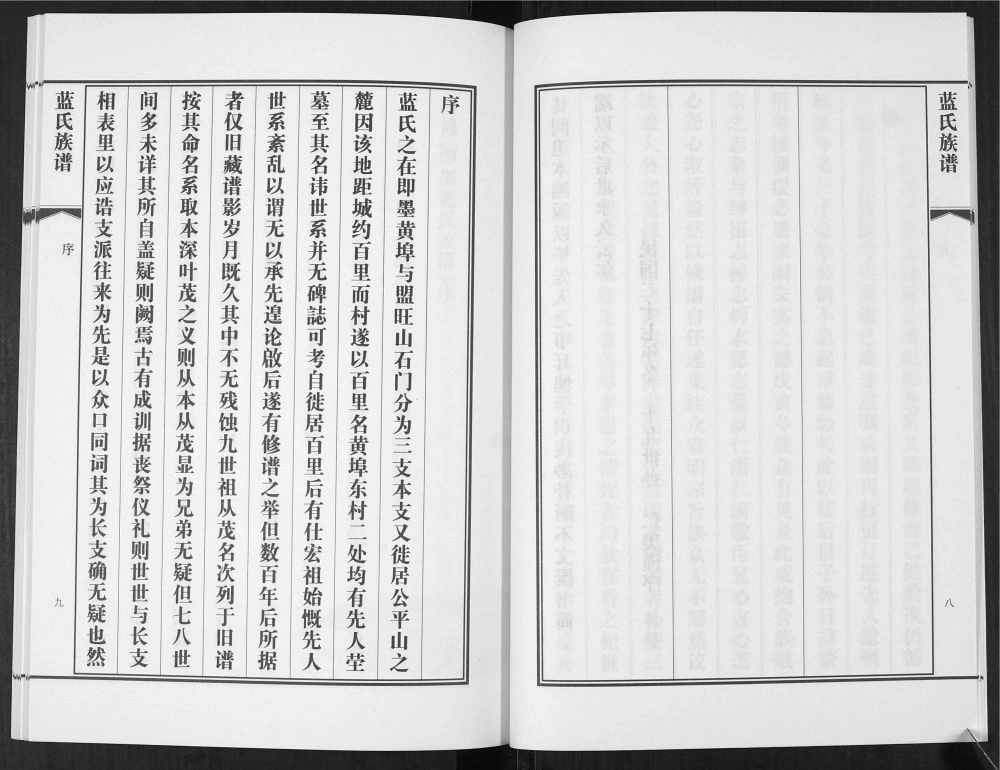 蓝氏族谱
八
序
蓝氏之在即墨黄埠与盟旺山石门分为三支本支又徙居公平山之
麓因该地距城约百里而村遂以百里名黄埠东村二处均有先人茔
墓至其名讳世系并无碑誌可考自徙居百里后有仕宏祖始慨先人
世系紊乱以谓无以承先遑论啟后遂有修谱之举但数百年后所据
者仅旧藏谱影岁月既久其中不无残蚀九世祖从茂名次列于旧谱
按其命名系取本深叶茂之义则从本从茂显为兄弟无疑但七八世
间多未详其所自盖疑则阙焉古有成训据丧祭仪礼则世世与长支
相表里以应诰支派往来为先是以众口同词其为长支确无疑也然
蓝氏族谱
序
九